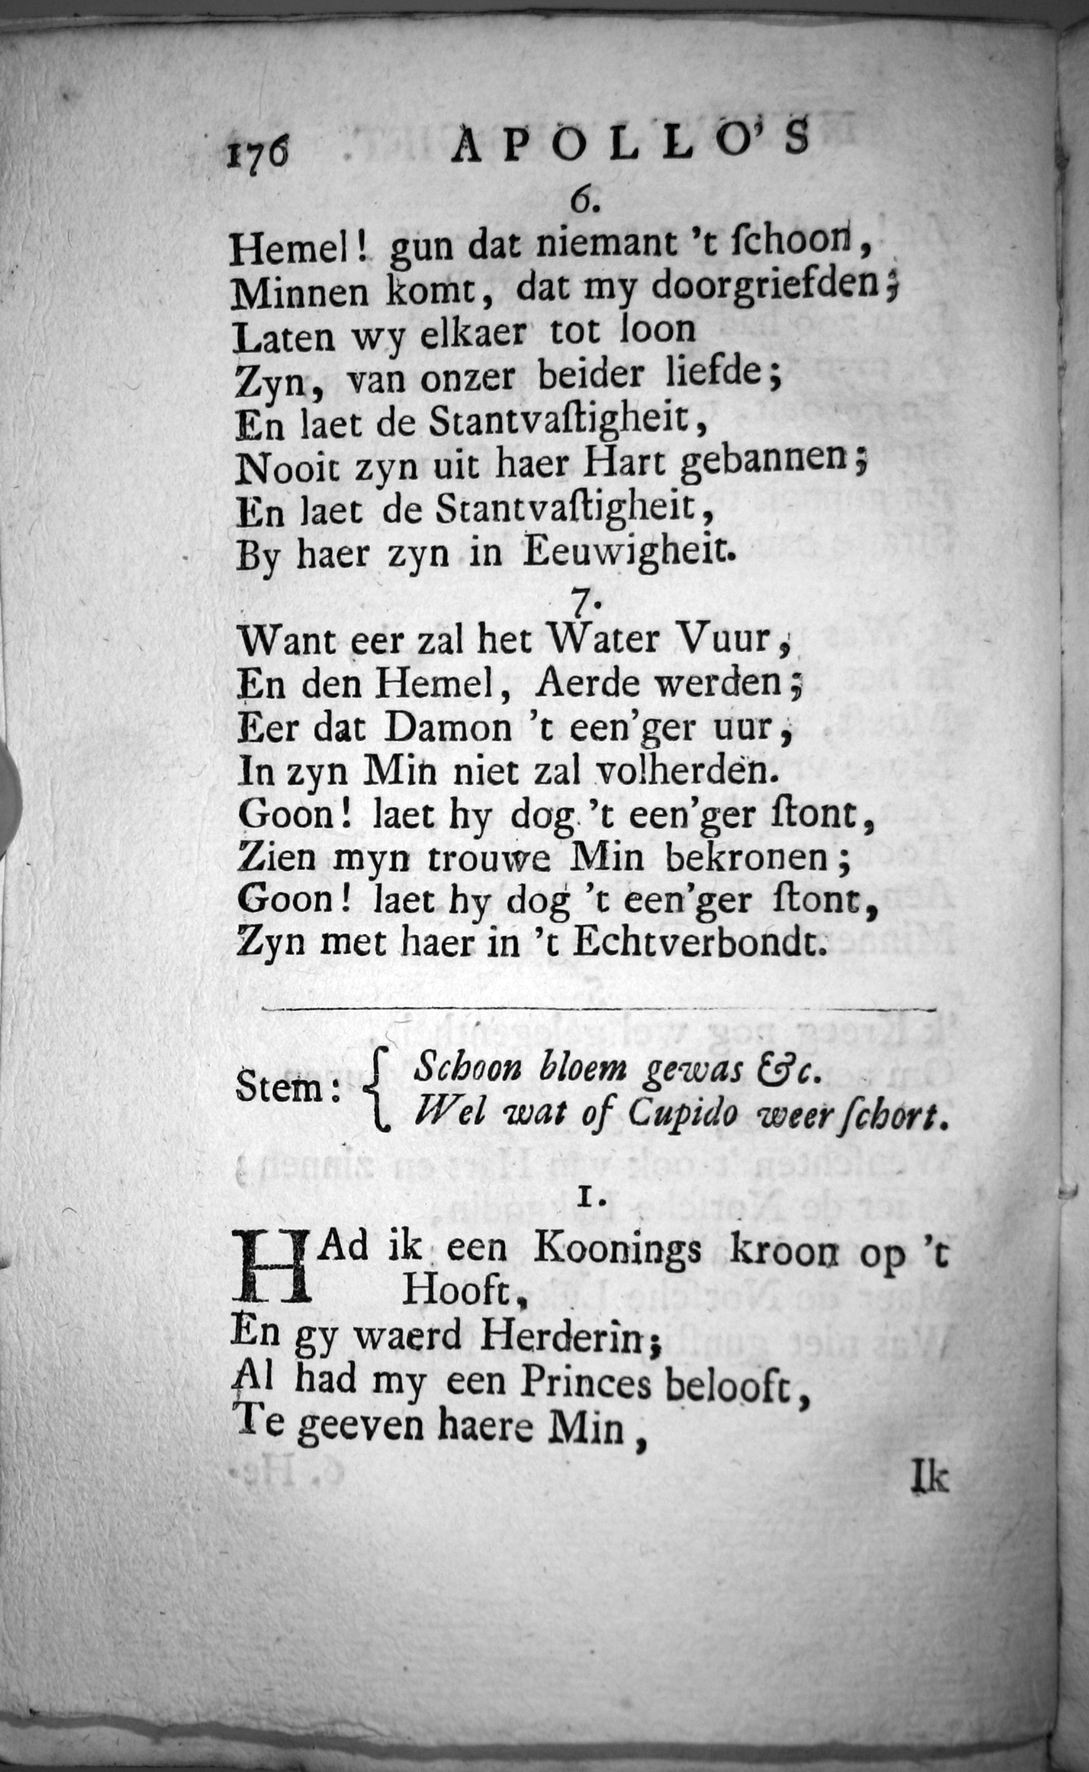 176 APOLLO'S
6.
Hemel! gun dat niemant 't ſchoon,
Minnen komt, dat my doorgriefden;
Laten wy elkaer tot loon
Zyn, van onzer beider liefde;
En laet de Stantvaſtigheit,
Nooit zyn uit haer Hart gebannen;
En laet de Stantvaſtigheit,
By haer zyn in Eeuwigheit.
7.
Want eer zal het Water Vuur,
En den Hemel, Aerde werden;
Eer dat Damon 't een'ger uur,
In zyn Min niet zal volherden.
Goon! laet hy dog 't een'ger ſtont,
Zien myn trouwe Min bekronen;
Goon! laet hy dog 't een'ger ſtont,
Zyn met haer in 't Echtverbondt.
Stem: { Schoon bloem gewas &c.
Wel wat of Cupido weer ſchort.
1.
HAd ik een Koonings kroon op 't
Hooft,
En gy waerd Herderin;
Al had my een Princes belooft,
Te geeven haere Min,
Ik